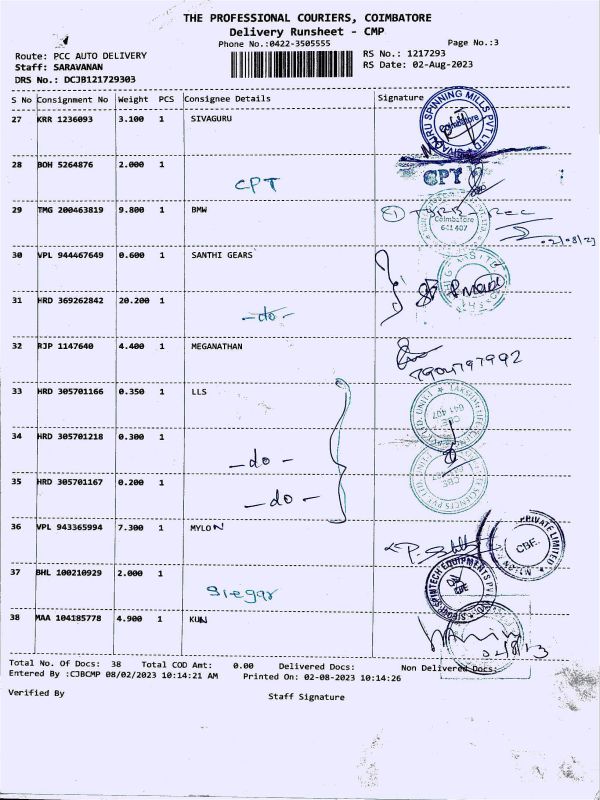 THE PROFESSIONAL COURIERS, COIMBATORE
Delivery Runsheet - CMP
Phone No.:0422-3505555
Page No.:3
Route: PCC AUTO DELIVERY
RS No.: 1217293
Staff: SARAVANAN
RS Date: 02-Aug-2023
DRS No.: DCJB121729303
S No Consignment No Weight PCS Consignee Details Signature
27 KRR 1236093 3.100 1 SIVAGURU
28 BOH 5264876 2.000 1 CPT
CPT
29 TMG 200463819 9.800 1 BMW
Coimbatore
641 407
30 VPL 944467649 0.600 1 SANTHI GEARS
31 HRD 369262842 20.200 1 -do-
32 RJP 1147640 4.400 1 MEGANATHAN
7904797992
33 HRD 305701166 0.350 1 LLS
34 HRD 305701218 0.300 1 -do-
35 HRD 305701167 0.200 1 -do-
36 VPL 943365994 7.300 1 MYLON
PRIVATE LIMITED
CBE.
37 BHL 100210929 2.000 1 Siegar
38 MAA 104185778 4.900 1 KUN
Total No. Of Docs: 38 Total COD Amt: 0.00 Delivered Docs: Non Delivered Docs:
Entered By :CJBCMP 08/02/2023 10:14:21 AM Printed On: 02-08-2023 10:14:26
Verified By
Staff Signature